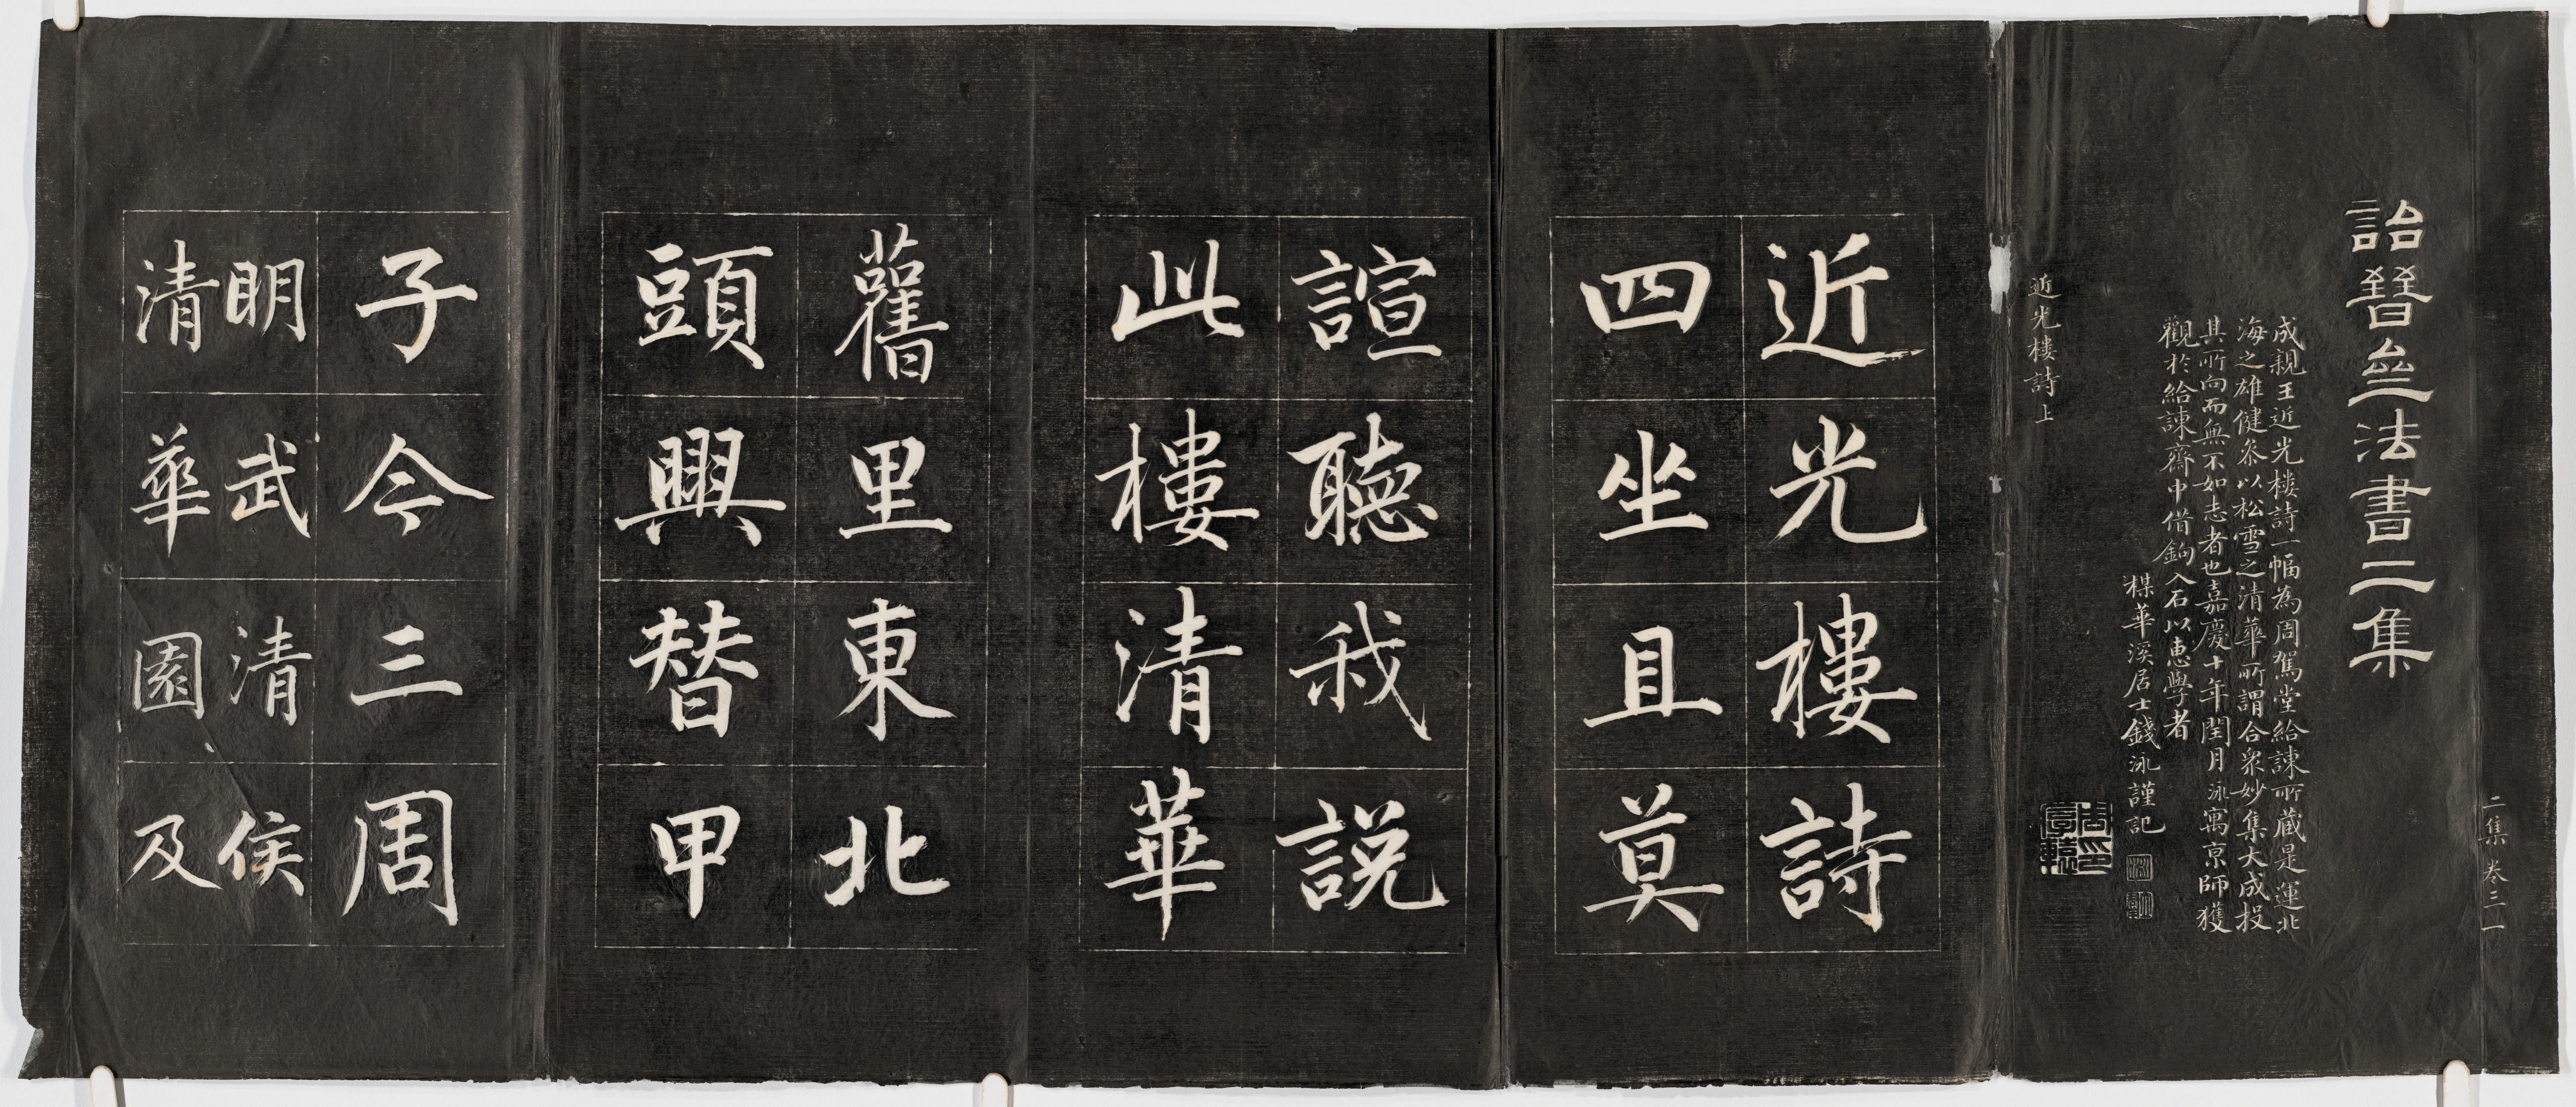 二集 卷三 一
詒晉齋法書二集
成親王近光樓詩一幅為周駕堂給諫所藏是運北
海之雄健叅以松雪之清華所謂合衆妙集大成投
其所向而無不如志者也嘉慶十年閏月泳寓京師獲
觀於給諫齋中借鉤入石以惠學者
楳華溪居士錢泳謹記
近光樓詩上
近光樓詩
四坐且莫
諠聽我説
此樓清華
舊里東北
頭興替甲
子今三周
明武清侯
清華園及